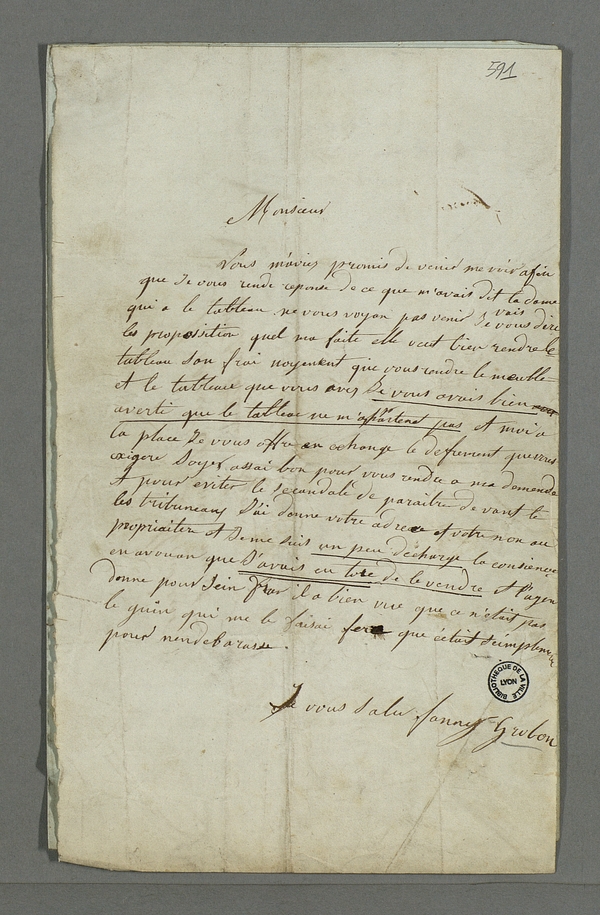 591
Monsieur
Vous m'aviez promis de venir me voir afin
que Je vous rende reponse de ce que m'avais dit la dame
qui a le tableau ne vous voyan pas venir Je vais vous dire
les proposition quel ma faite elle veut bien rendre le
tableau son frai noyenent que vous rendre le meuble
et le tableau que vous avez Je vous avais bien
averti que le tableau ne m'appartenet pas et moi a
ta place Je vous offre en echange le defrevent que vous
exigere Soyez assai bon pour vous rendre a ma demande
et pour eviter le scandale de paraitre devant le
les tribuneaux J'ai donne votre adresse et votre non au
propriaiter et Je me suis un peu décharge la consience
en avouan que J'avais eu tore de le vendre et l'agen
donne pour Jein frai il a bien vue que ce n'etait pas
le guin qui me le faisai fere que cétait Seimplement
pour nendebarasse.
Je vous Salu fanny Grobon
BIBLIOTHEQUE DE LA VILLE
LYON